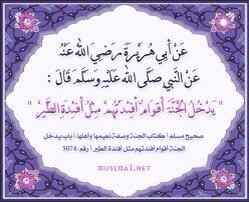 عَنْ أَبِي هُرَيْرَةَ رَضِيَ اللهُ عَنْهُ
عَنِ النَّبِيِّ صَلَّى اللهُ عَلَيْهِ وَسَلَّمَ قَالَ :
" يَدْخُلُ الْجَنَّةَ أَقْوَامٌ أَفْئِدَتُهُمْ مِثْلُ أَفْئِدَةِ الطَّيْرِ "
صحيح مسلم | كتاب الجنة وصفة نعيمها وأهلها | باب يدخل
الجنة أقوام أفئدتهم مثل أفئدة الطير | رقم :5074